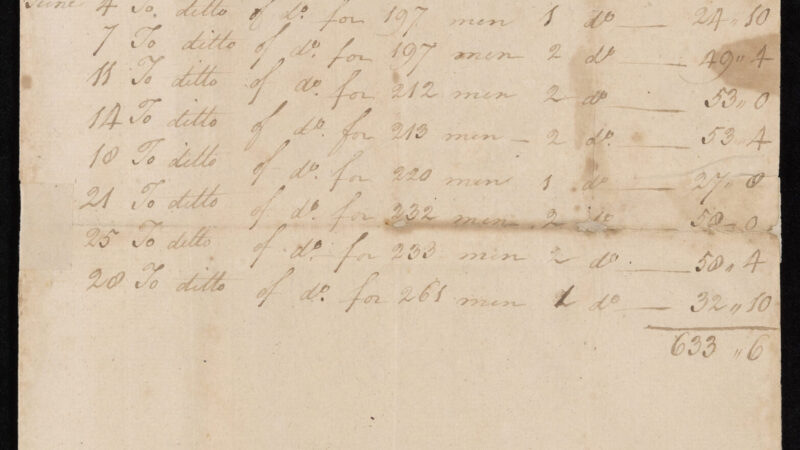 June 4 To ditto of do. for 197 men 1 do — 24 " 10
7 To ditto of do. for 197 men 2 do — 49 " 4
11 To ditto of do. for 212 men 2 do — 53 " 0
14 To ditto of do. for 213 men — 2 do. — 53 4
18 To ditto of do. for 220 men 1 do — 27 " 8
21 To ditto of do. for 232 men 2 do — 58 0
25 To ditto of do. for 233 men 2 do. — 58 " 4
28 To ditto of do. for 261 men 1 do — 32 " 10
633 " 6